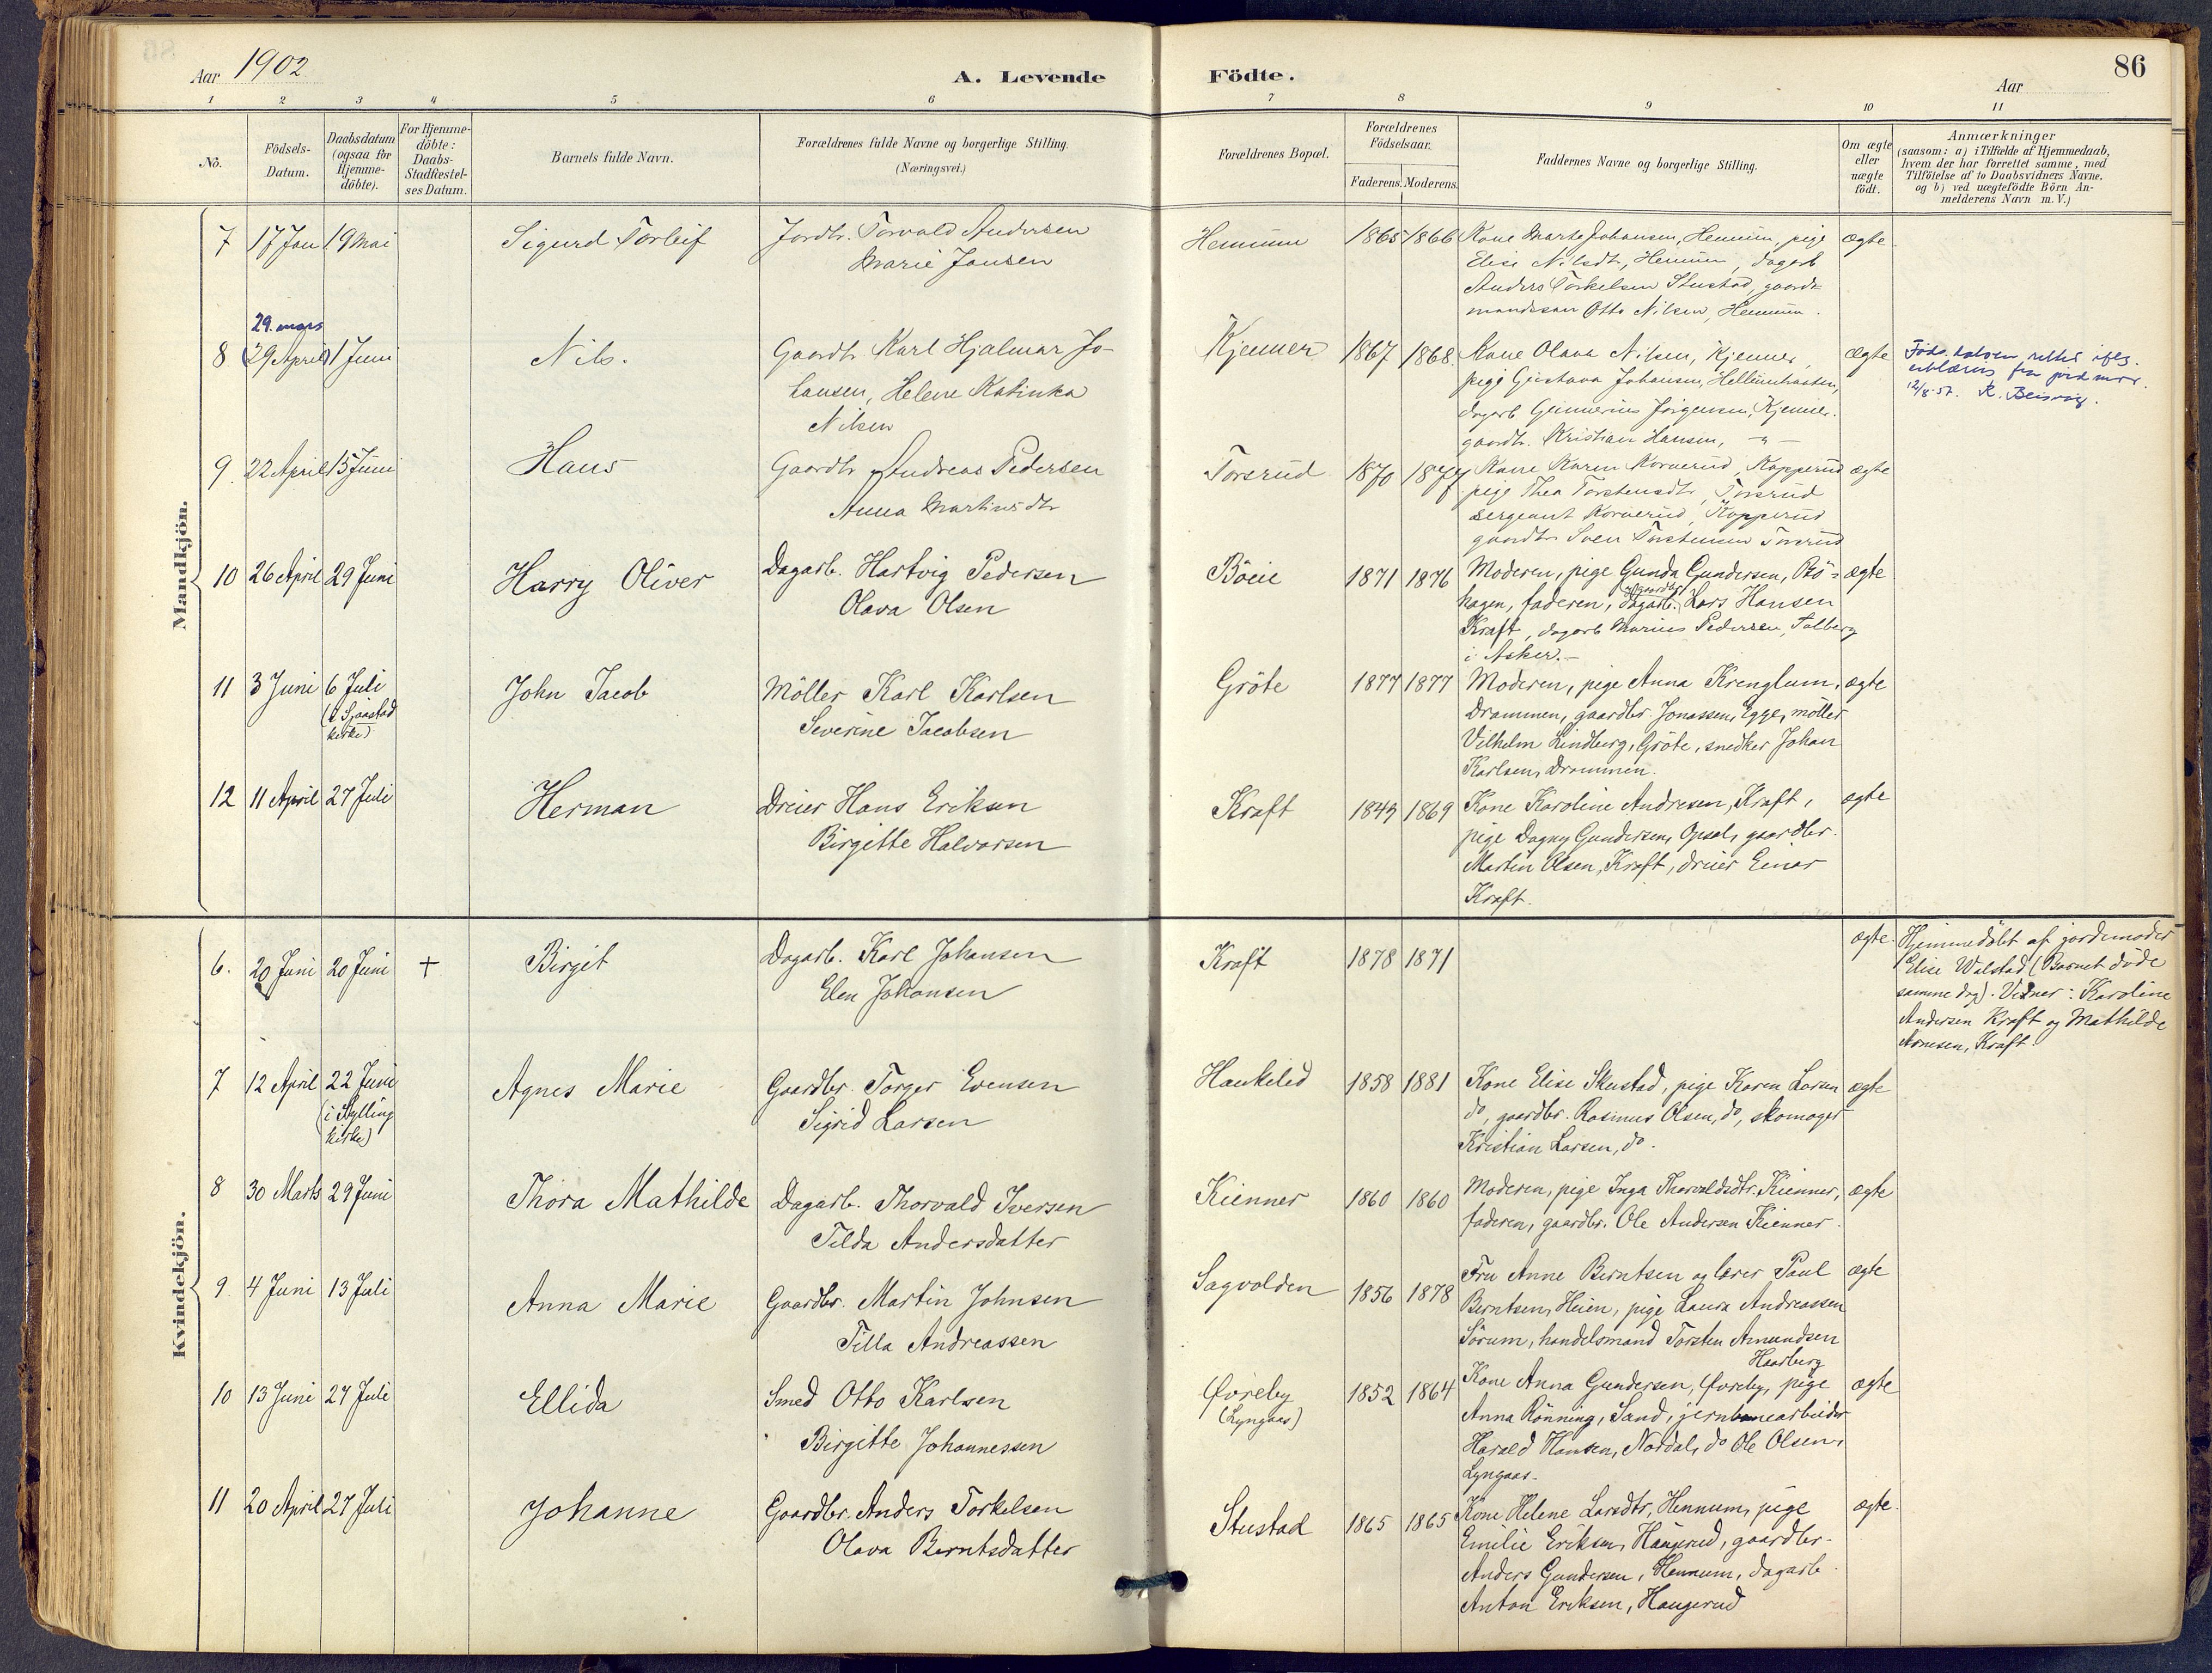 Aar 1902
A. Levende Födte.
86
Aar
1 2 3 4 5 6 7 8 9 10 11
Nö.
Födsels-Datum.
Daabsdatum (ogsaa for Hjemme-döbte).
For Hjemme-döbte: Daabs-Stadfæstel-ses Datum.
Barnets fulde Navn.
Forældrenes fulde Navne og borgerlige Stilling.
(Næringsvei.)
Forældrenes Bopæl.
Forældrenes Födselsaar.
Faderens. Moderens.
Faddernes Navne og borgerlige Stilling.
Om ægte eller uægte födt.
Anmærkninger
(saasom: a) i Tilfælde af Hjemmedaab,
hvem der har forrettet samme, med
Tilföielse af to Daabsvidners Navne.
og b) ved uægtefödte Börn An-
melderens Navn m. V.)
Mandkjön.
7 17 Jan 19 Mai Sigurd Torleif Jordbr. Torvald Andersen
Marie Jansen
Hennum 1865 1866 Kone Marte Johansen, Hennum, pige
Elise Nilsdtr, Hennum, dagarb
Anders Torkelsen Stustad, gaard-
mandssøn Otto Nilsen, Hennum.
ægte
29. mars
8 (29 April) 1 Juni Nils. Gaardbr Karl Hjalmar Jo-
hansen, Helene Katinka
Nilsen
Kjenner 1867 1868 Kone Olava Nilsen, Kjenner,
pige Gustava Johansen,
dagarb Gunnerius Jörgensen, Kjenner.
gaardbr. Kristian Hansen, - " -
ægte
Føds.datoen rettet ifig.
erklæring fra jordmor.
12/8-57. K.
9. 22 April 15 Juni Hans Gaardbr Andreas Pedersen
Anna Martinsdtr
Torsrud 1870 1877 Kone Karen Korverud, Kopperud
pige Thea Torstensdtr, Torsrud
sergeant Korverud, Kopperud
gaardbr Sven Torstensen Torsrud
ægte
10 26 April 29 Juni Harry Oliver Dagarb. Hartvig Pedersen
Olava Olsen
Böeie 1871 1876 Moderen, pige Gunda Gundersen, Bö-
hagen, faderen, (dagarb.) Lars Hansen
Kraft, dagarb Marius Pedersen, Solberg
i Asker.-
ægte
11 3 Juni 6 Juli
(i Sjaastad
kirke)
John Jacob Möller Karl Karlsen
Severine Jacobsen
Gröte 1877 1877 Moderen, pige Anna Krenglum,
Drammen, gaardbr. Jonassen, Egge, möller
Vilhelm Lindberg, Gröte, snedker Johan
Karlsen, Drammen.
ægte
12 11 April 27 Juli Herman Dreier Hans Eriksen
Birgitte Halvorsen
Kraft 1849 1869 Kone Karoline Andresen, Kraft,
pige Dagny Gundersen, Opsal, gaardbr.
Martin Olsen, Kraft, dreier Einar
Kraft.
ægte
Kvindekjön.
6. 20 Juni 20 Juni + Birgit Dagarb. Karl Johansen
Elen Johansen
Kraft 1878 1871
ægte.
Hjemmedöbt af jordemoder
Elise Walstad (Barnet döde
samme dag). Vidner: Karoline
Andersen Kraft og Mathilde
Arnesen, Kraft.
7 12 April 22 Juni
(i Sylling
kirke)
Agnes Marie Gaardbr. Torger Evensen
Sigrid Larsen
Haukelid 1858 1881 Kone Elise Skustad, pige Karen Larsen
do, gaardbr. Rasmus Olsen, do, skomager
Kristian Larsen, do.
ægte
8 30 Marts 29 Juni Thora Mathilde Dagarb. Thorvald Iversen
Tilda Andersdatter
Kienner 1860 1860 Moderen, pige Inga Thorvaldsdtr. Kienner,
faderen, gaardbr. Ole Andersen Kienner.
ægte
9. 4 Juni 13 Juli Anna Marie Gaardbr. Martin Johnsen
Tilla Andreassen
Sagvolden 1856 1878 Fru Anne Berntsen og lærer Paul
Berntsen, Heien, pige Laura Andreassen
Sörum, handelsmand Torsten Amundsen
Haarberg
ægte
10 13 Juni 27 Juli Ellida Smed Otto Karlsen
Birgitte Johannessen
Øvreby
(Lyngaas)
1852 1864 Kone Anna Gundersen, Øvreby, pige
Anna Rönning, Sand, jernbanearbeider
Harald Hansen, Nordal, do Ole Olsen,
Lyngaas.
ægte
11 20 April 27 Juli Johanne Gaardbr. Anders Torkelsen
Olava Berntsdatter
Stustad 1865 1865 Kone Helene Larsdtr, Hennum, pige
Emilie Eriksen, Haugerud, gaardbr.
Anders Gundersen, Hennum, dagarb.
Anton Eriksen, Haugerud
ægte.